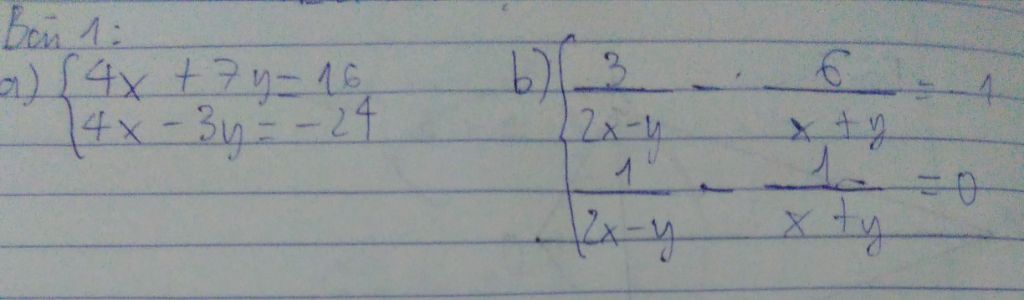 Bài 1:
a) { 4x + 7y = 16
4x - 3y = -24
b) { 3/(2x-y) - 6/(x+y) = 1
1/(2x-y) - 1/(x+y) = 0